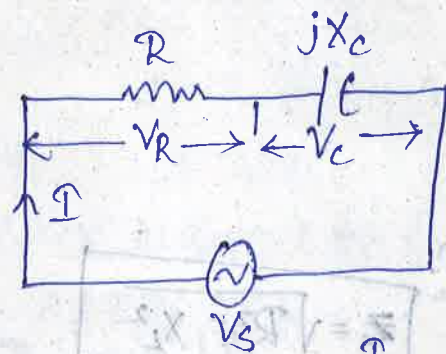 jXc
R
V_R V_C
I
V_S